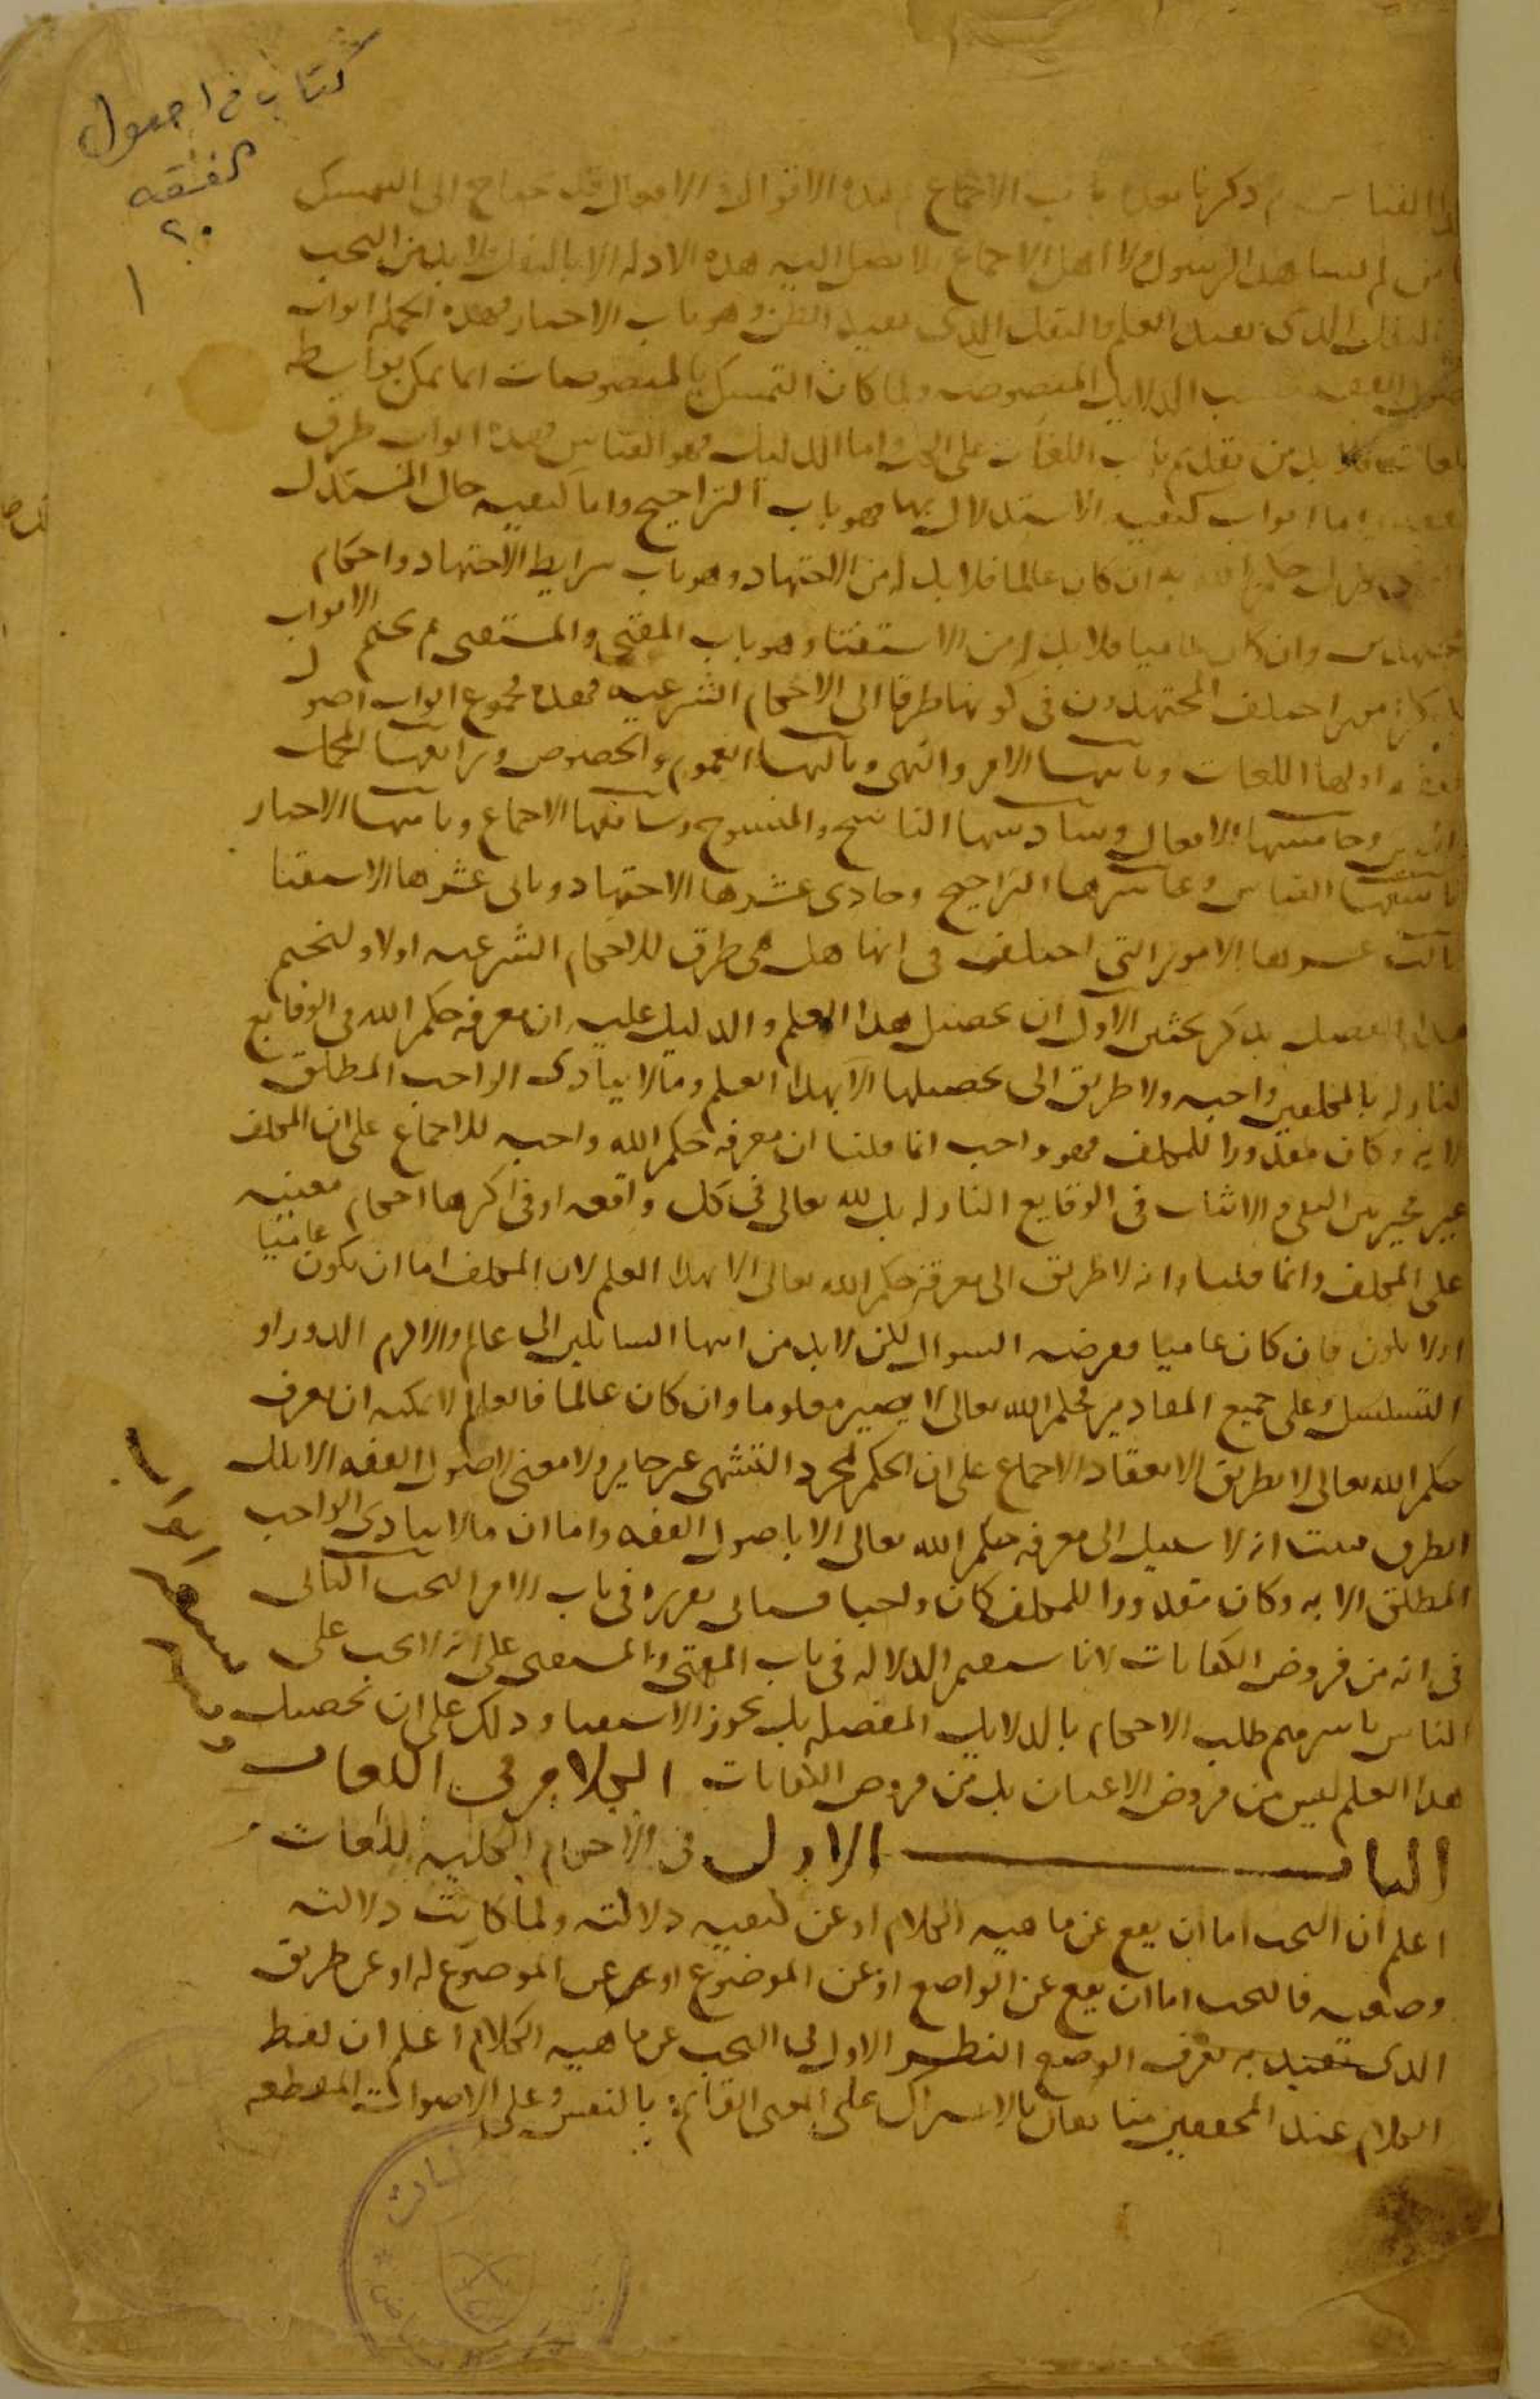 كتاب في اصول
الفقه
٢٠
١
القياس ثم ذكرنا بعده باب الاجماع هذه الاقوال والافعال قد يحتاج الى التمسك
من لم يشاهد الرسول ولا اهل الاجماع لا تصل اليه هذه الادلة الا بالنقل فلا بد من البحث
النقل الذي يفيد العلم والنقل الذي يفيد الظن وهو باب الاخبار فهذه الجملة ابواب
اصول الفقه بحسب الدلايل المنصوصه ولما كان التمسك بالمنصوصات انما يمكن بواسطه
اللغات فلا بد من تقديم باب اللغات على الكل واما الدليل فهو القياس فهذه ابواب طرق
الفقه واما ابواب كيفيه الاستدلال بها فهو باب التراجيح واما كيفيه حال المستدل
حكم الله به ان كان عالما فلا بد له من الاجتهاد وهو باب شرايط الاجتهاد واحكام
المجتهدين وان كان عاميا فلا بد له من الاستفتا وهو باب المفتي والمستفتي ثم نختم الابواب
بذكر امور اختلف المجتهدون في كونها طرقا الى الاحكام الشرعيه فهذه مجموع ابواب اصول
الفقه اولها اللغات وثانيها الامر والنهي وثالثها العموم والخصوص ورابعها المجمل
والمبين وخامسها الافعال وسادسها الناسخ والمنسوخ وسابعها الاجماع وثامنها الاخبار
تاسعها القياس وعاشرها التراجيح وحادي عشرها الاجتهاد وثاني عشرها الاستفتا
ثالث عشرها الامور التي اختلف في انها هل هي طرق للاحكام الشرعيه اولا ولنختم
هذا الفصل بذكر بحثين الاول ان تحصيل هذا العلم والدليل عليه ان معرفه حكم الله في الوقايع
النازله بالمكلفين واجبه ولا طريق الى تحصيلها الا بهذا العلم وما لا يتادى الواجب المطلق
الا به وكان مقدورا للمكلف فهو واجب انما قلنا ان معرفه حكم الله واجبه للاجماع على ان المكلف
غير مخير بين النفي والاثبات في الوقايع النازله بل لله تعالى في كل واقعه او في اكثرها احكام معينه
على المكلف وانما قلنا انه لا طريق الى معرفة حكم الله تعالى الا بهذا العلم لان المكلف اما ان يكون عاميا
اولا يكون فان كان عاميا ففرضه السوال لكن لا بد من انتها السايلين الى عالم والا لزم الدور او
التسلسل وعلى جميع التقادير فحكم الله تعالى لا يصير معلوما وان كان عالما فالعالم لا يمكنه ان يعرف
حكم الله تعالى الا بطريق لانعقاد الاجماع على ان الحكم لمجرد التشهي غير جايز ولا معنى لاصول الفقه الا تلك
الطرق فثبت انه لا سبيل الى معرفه حكم الله تعالى الا باصول الفقه واما ان ما لا يتادى الواجب
المطلق الا به وكان مقدورا للمكلف كان واجبا فسياتي تقريره في باب الامر البحث الثاني
في انه من فروض الكفايات لانا سنقيم الدلاله في باب المفتي والمستفتي على انه لا يجب على
الناس باسرهم طلب الاحكام بالدلايل المفصله بل يجوز الاستفتا وذلك على ان تحصيل
هذا العلم ليس من فروض الاعيان بل من فروض الكفايات الكلام في اللغات
الباب الاول في الاحكام الكليه للغات
اعلم ان البحث اما ان يقع عن ماهيه الكلام او عن كيفيه دلالته ولما كانت دلالته
وضعيه فالبحث اما ان يقع عن الواضع او عن الموضوع او عن الموضوع له او عن طريق
الذي به يعرف الوضع النظر الاول في البحث عن ماهيه الكلام اعلم ان لفظ
الكلام عند المحققين منا يقال بالاشتراك على المعنى القائم بالنفس وعلى الاصوات المقطعه